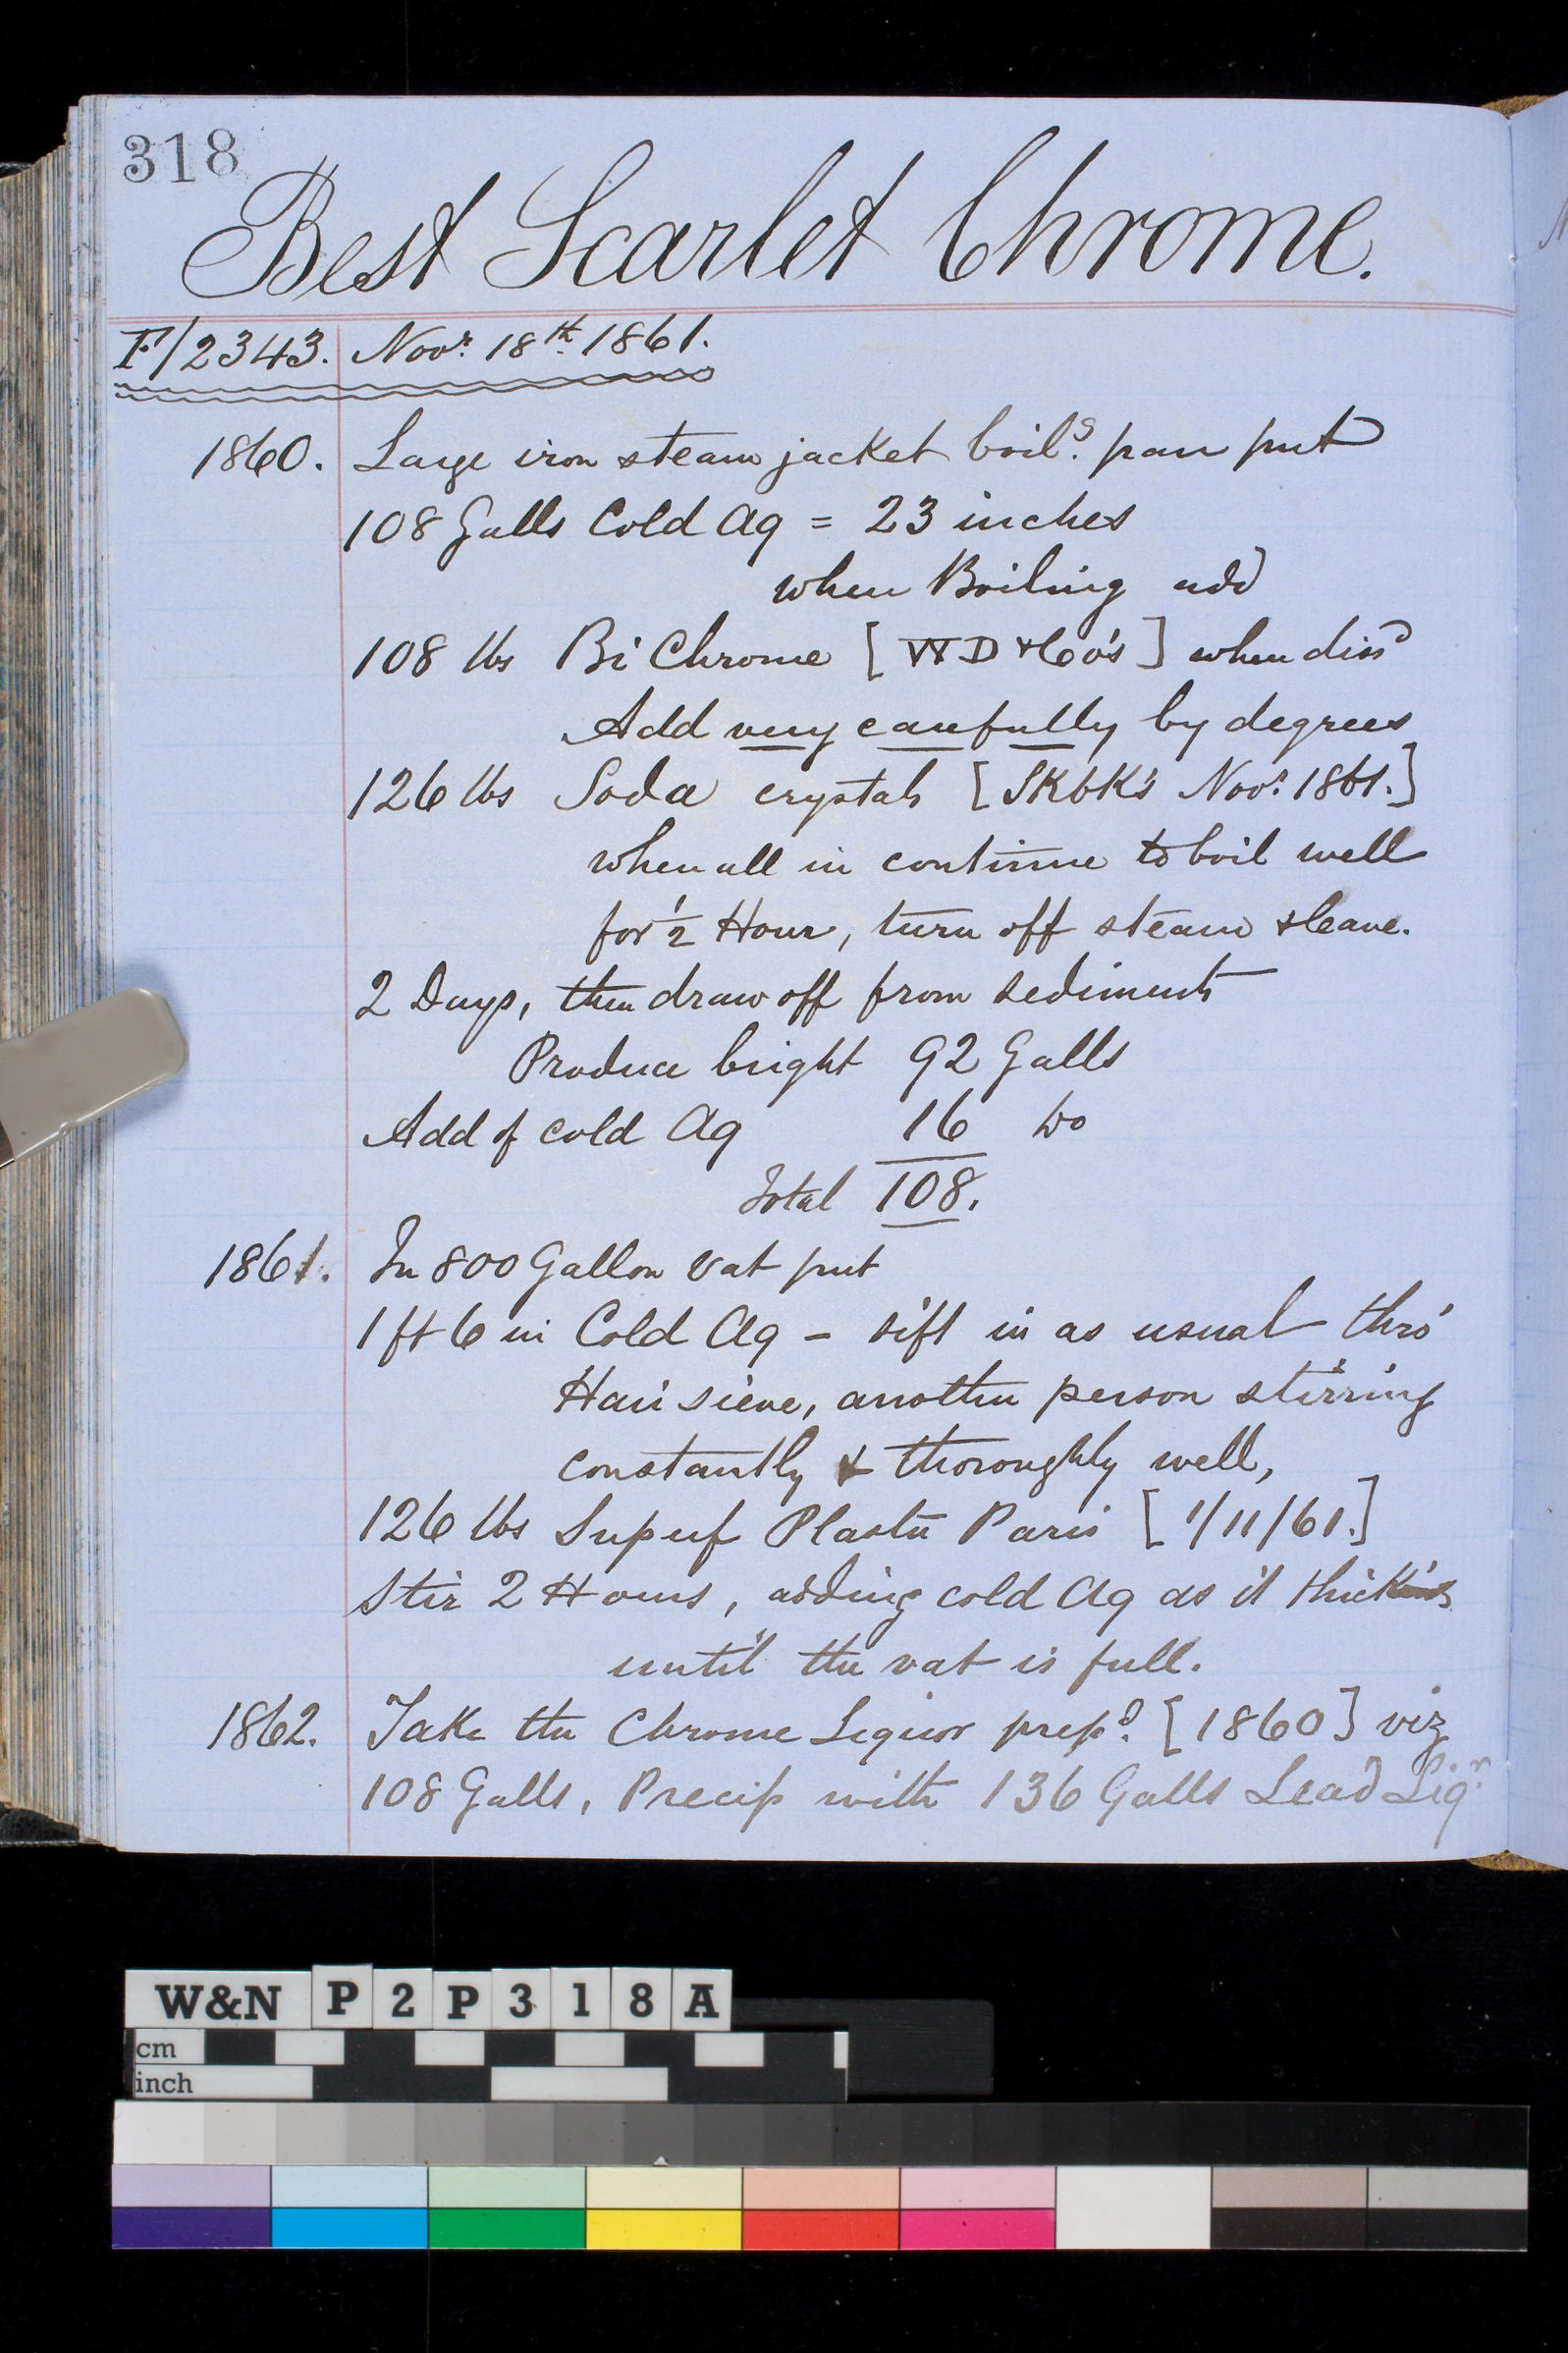 318
Best Scarlet Chrome.
F/2343. Novr. 18th. 1861.
1860. Large iron steam jacket boilg. pan put
108 Galls Cold Aq = 23 inches
when Boiling add
108 lbs Bi Chrome [WD & Co's] when dissd
Add very carefully by degrees
126 lbs Soda crystals [Novr. 1861.]
when all in continue to boil well
for 1/2 Hour, turn off steam & leave.
2 Days, then draw off from sediment
Produce bright 92 Galls
Add of cold Aq 16 Do
Total 108.
1861. In 800 Gallon vat put
1 ft 6 in Cold Aq - sift in as usual thro'
Hair sieve, another person stirring
constantly & thoroughly well,
126 lbs Superf Plaster Paris [1/11/61.]
Stir 2 Hours, adding cold Aq as it thickens
until the vat is full.
1862. Take the Chrome Liquor prepd. [1860] viz
108 Galls, Precip with 136 Galls Lead Liqr.
W&N P2P318A
cm
inch